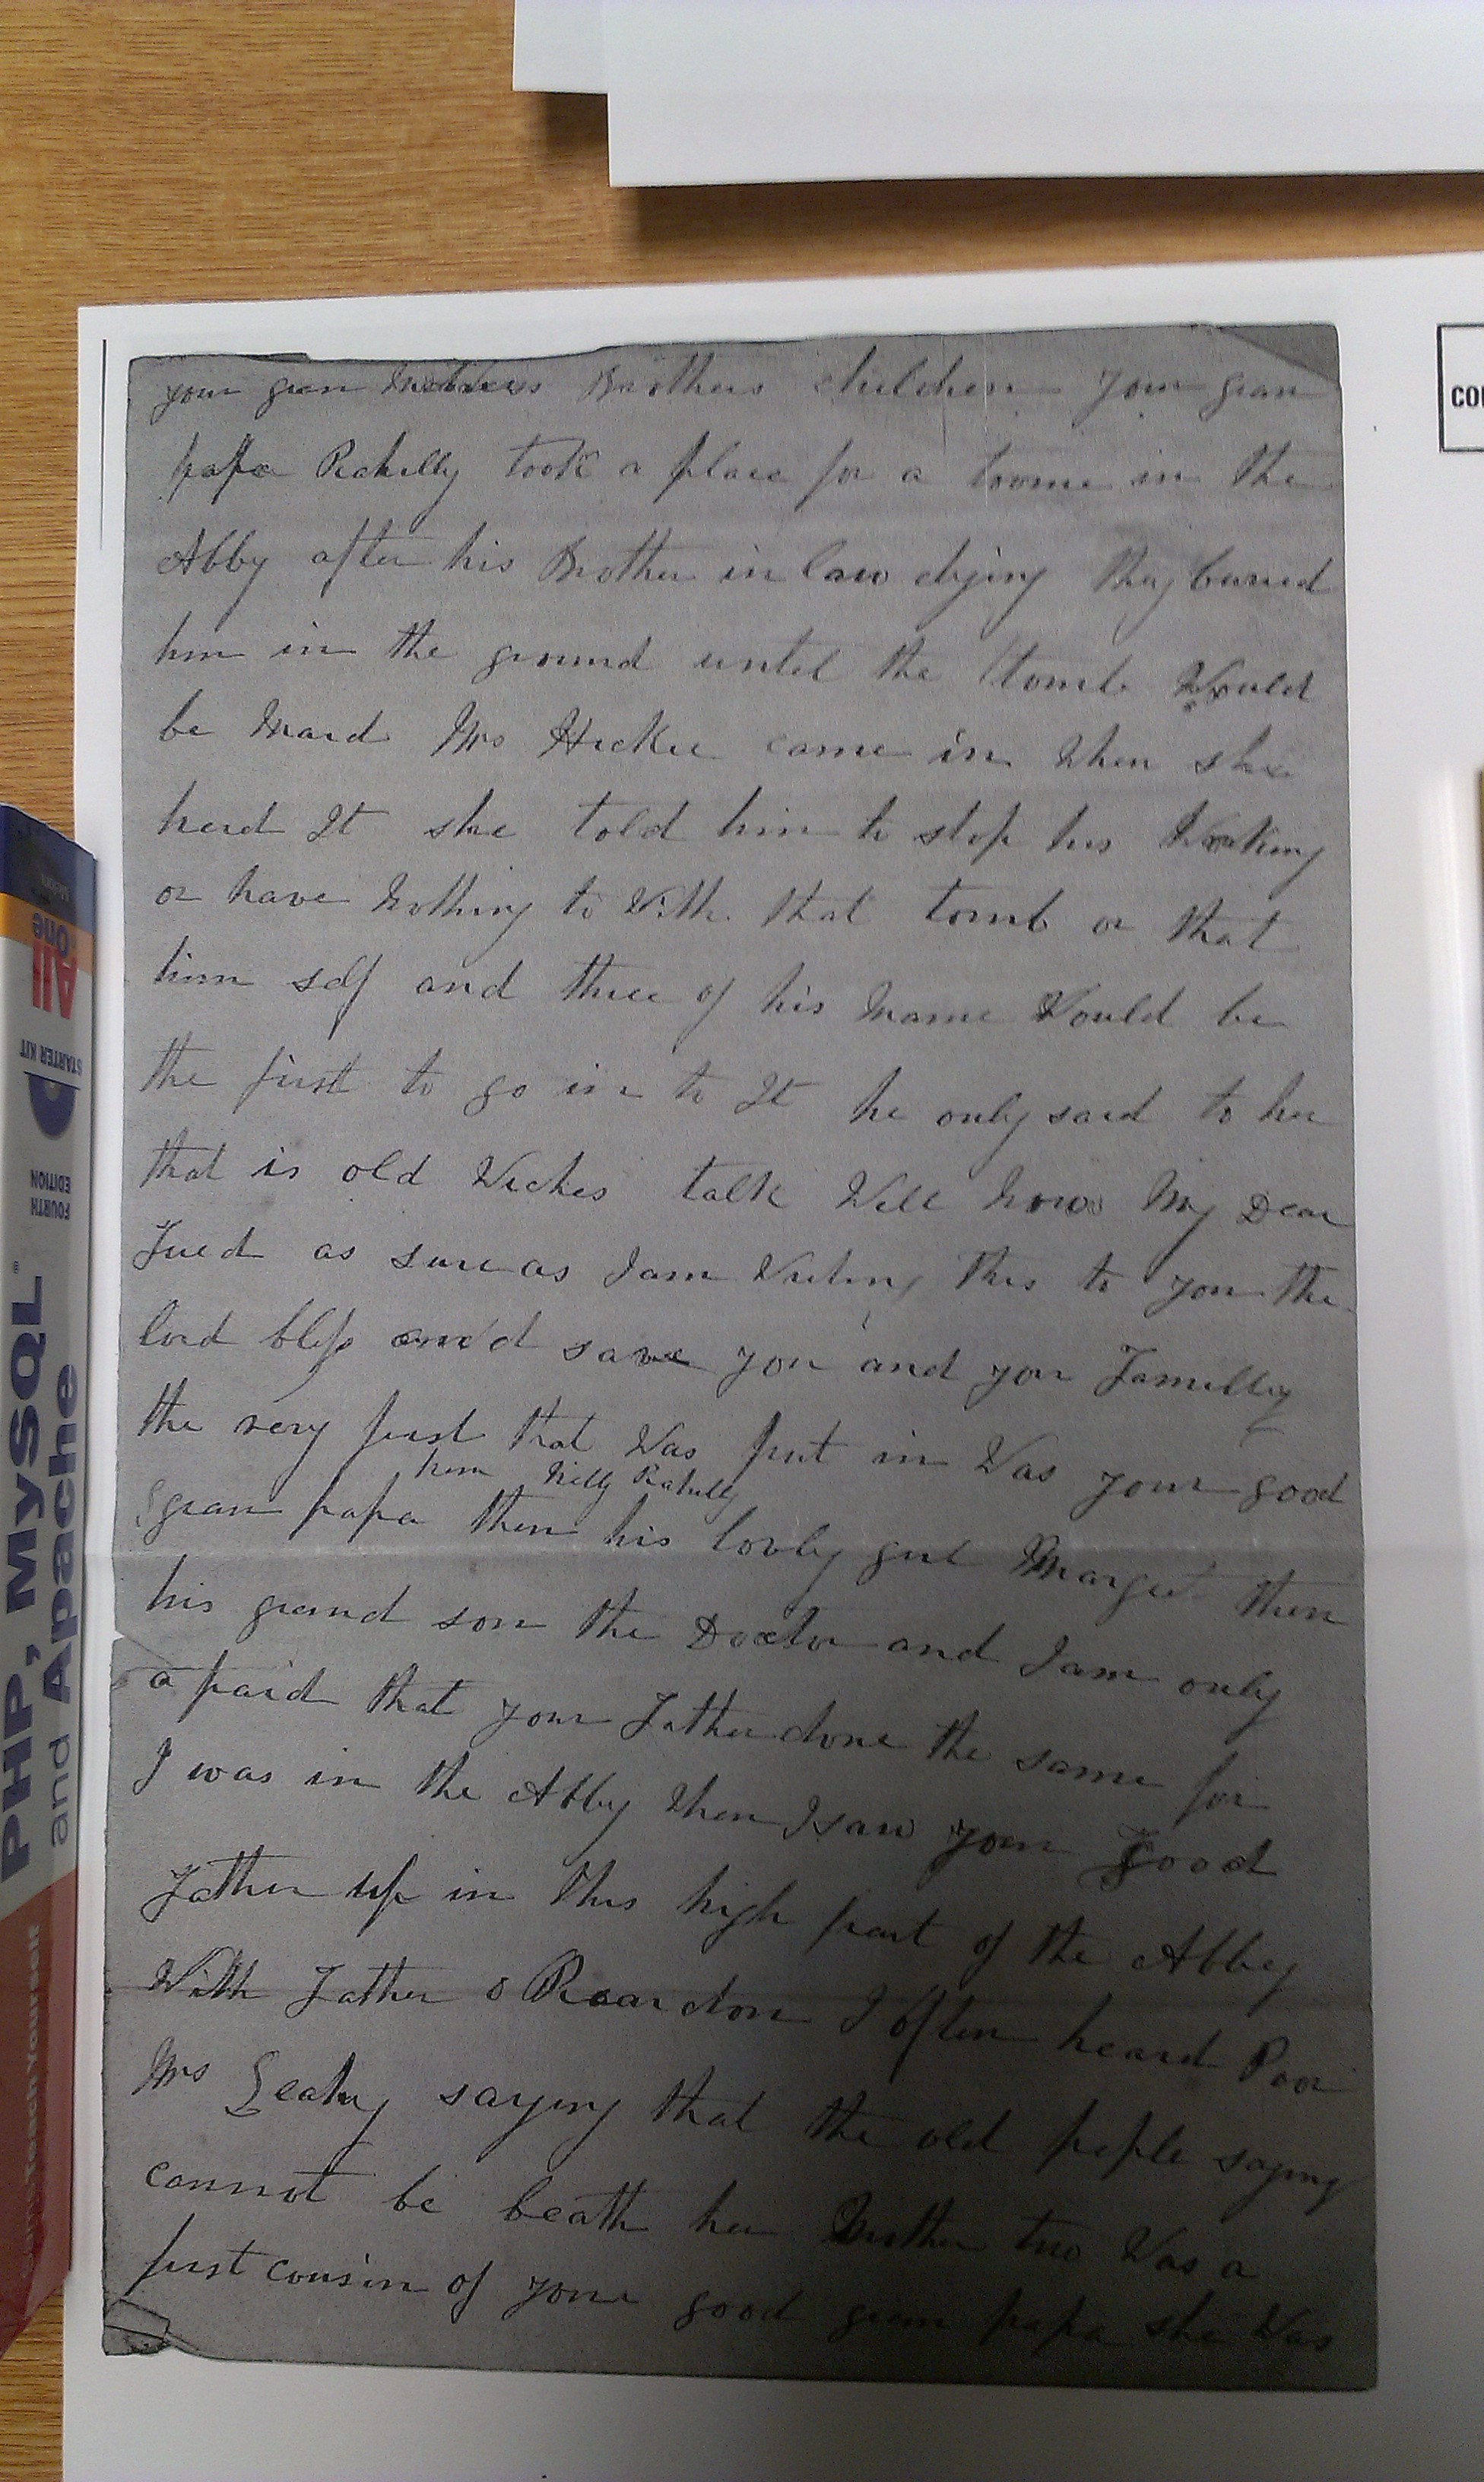 your gran Mothers Brothers children your gran
papa Rahilly took a place for a toome in the
Abby after his Brother in law dying they buried
him in the ground until the tomb Would
be Maid Mrs Hickie came in When she
herd It she told him to stop his Working
or have Nothing to With that tomb or that
him self and three of his Name Would be
the first to go in to It he only said to her
that is old Wiches talk Well Now My Dear
Fred as sure as I am Writing this to you the
lord bless and save you and your Familly
the very first that Was put in Was your good
Nelly Rahilly
gran papa then his lovly girl Margret then
his grand son the Doctor and I am only
a fraid that your Father done the same for
I was in the Abby When I saw your good
Father up in this high part of the Abbey
With Father o Reardon I often heard Poor
Mrs Leahy saying that the old pople saying
cannot be beath her Mother two Was a
first cousin of your good gran papa she Was
COI
All
in
One
STARTER KIT
FOURTH
EDITION
PHP, MySQL
and Apache
Teach Yourself